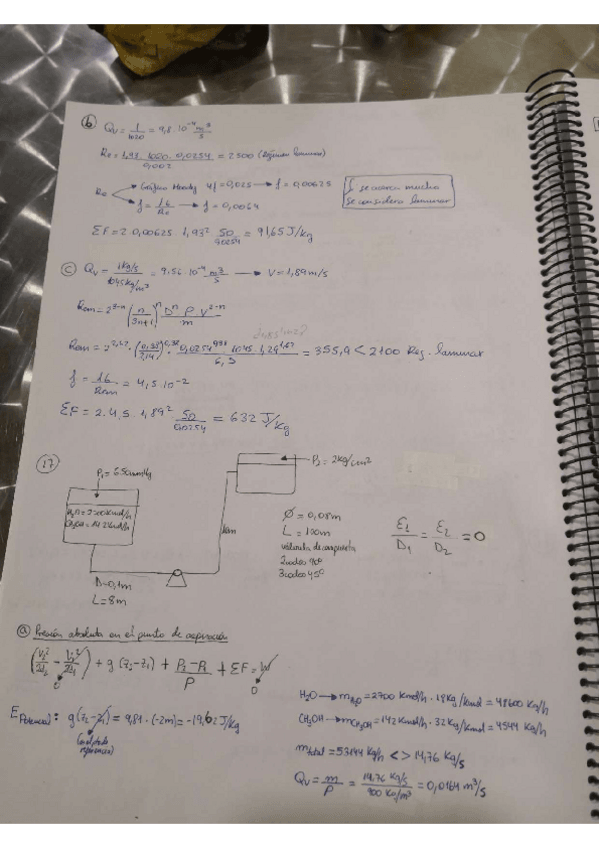 b) Qv = 1/1020 = 9,8 · 10⁻⁴ m³/s
Re = 1,93 · 1020 · 0,0254/0,002 = 2500 (Régimen laminar)
Re → Gráfico Moody 4f = 0,025 → f = 0,00625
→ f = 16/Re → f = 0,0064
f se acerca mucho
se considera laminar
ΣF = 2 · 0,00625 · 1,93² · 50/0,0254 = 91,65 J/kg
c) Qv = 1kg/s/1045kg/m³ = 9,56 · 10⁻⁴ m³/s → V = 1,89 m/s
Rem = 2³⁻ⁿ (n/3n+1)ⁿ Dⁿ ρ V²⁻ⁿ/m
= 355,9 < 2100 Reg. laminar
f = 16/Rem = 4,5 · 10⁻²
ΣF = 2 · 4,5 · 1,89² · 50/0,0254 = 632 J/kg
17
P₁ = 650mmHg
P₂ = 2kg/cm²
D = 0,1m
L = 8m
Ø = 0,08m
L = 100m
válvula de compuerta
2 codos 90º
3 codos 45º
ε₁/D₁ = ε₂/D₂ = 0
a) Presión absoluta en el punto de aspiración
+ g (z₂ - z₁) + P₂ - P₁/ρ + ΣF = W
0
0
E Potencial: g(z₂ - z₁) = 9,81 · (-2m) = -19,62 J/kg
H₂O → mH₂O = 2700 Kmol/h · 18 Kg/kmol = 48600 Kg/h
CH₃OH → mCH₃OH = 142 Kmol/h · 32 Kg/kmol = 4544 Kg/h
mtotal = 53144 Kg/h <> 14,76 Kg/s
Qv = m/ρ = 14,76 Kg/s/900 Kg/m³ = 0,0164 m³/s